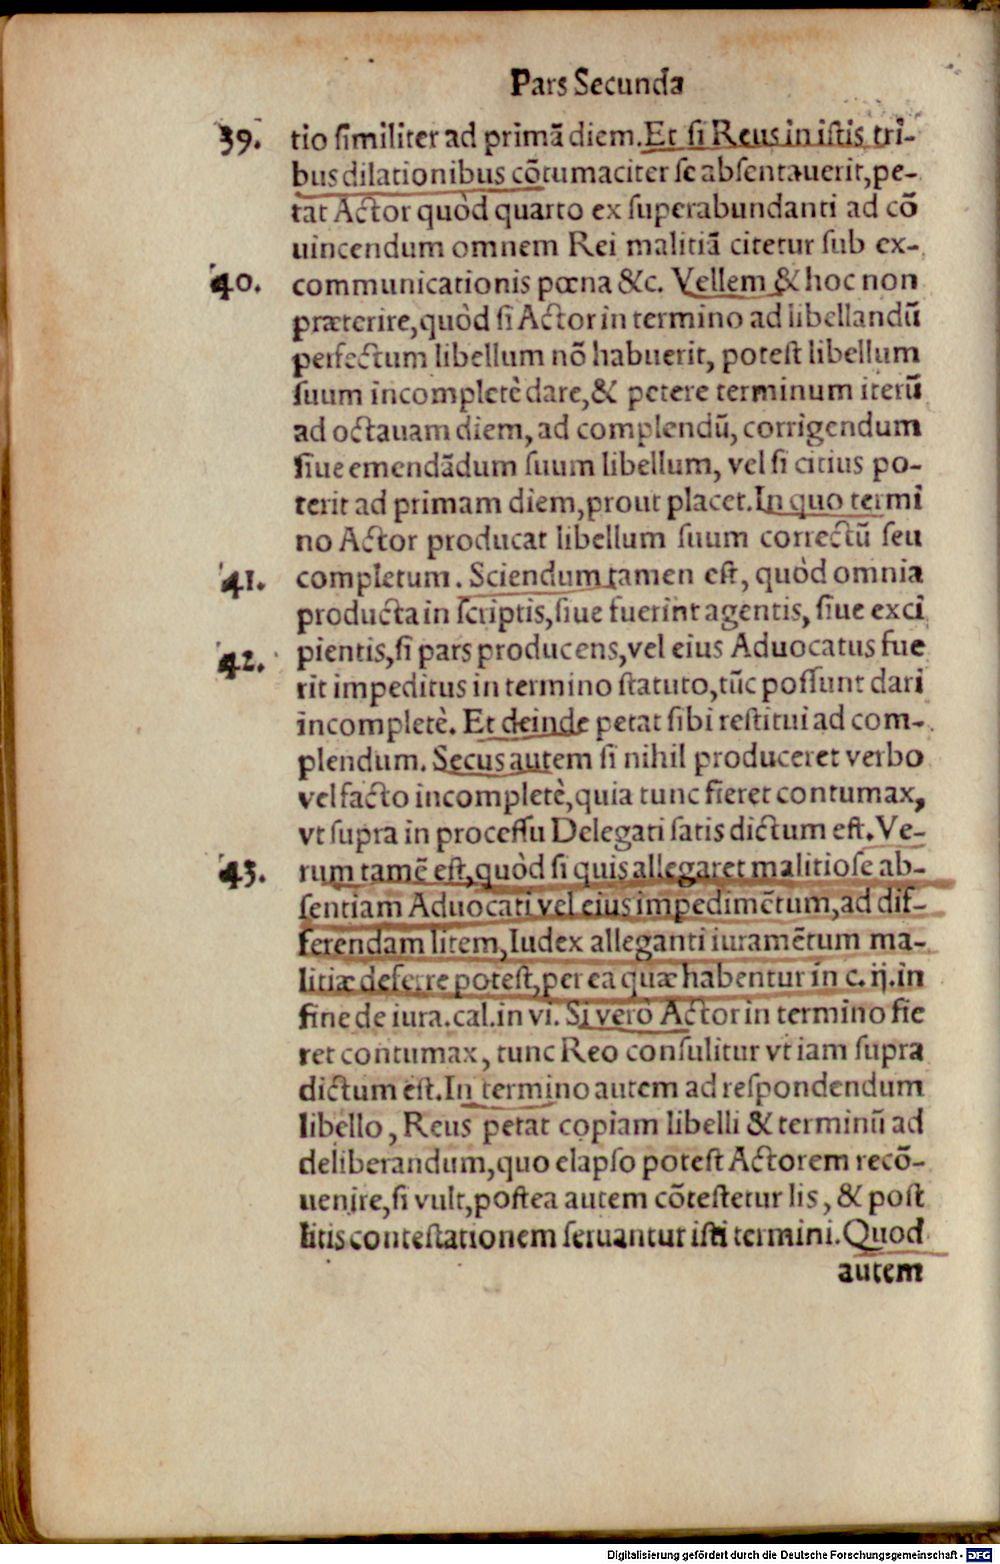 Pars Secunda
39. tio ſimiliter ad primã diem. Et ſi Reus in iſtis tri-
bus dilationibus cõtumaciter ſe abſentauerit, pe-
tat Actor quòd quarto ex ſuperabundanti ad cõ
uincendum omnem Rei malitiã citetur ſub ex-
40. communicationis pœna &c. Vellem & hoc non
præterire, quòd ſi Actor in termino ad libellandũ
perfectum libellum nõ habuerit, poteſt libellum
ſuum incompletè dare, & petere terminum iterũ
ad octauam diem, ad complendũ, corrigendum
ſiue emendãdum ſuum libellum, vel ſi citius po-
terit ad primam diem, prout placet. In quo termi
no Actor producat libellum ſuum correctũ ſeu
41. completum. Sciendum tamen eſt, quòd omnia
producta in ſcriptis, ſiue fuerint agentis, ſiue exci
42. pientis, ſi pars producens, vel eius Aduocatus fue
rit impeditus in termino ſtatuto, tũc poſſunt dari
incompletè. Et deinde petat ſibi reſtitui ad com-
plendum. Secus autem ſi nihil produceret verbo
vel facto incompletè, quia tunc fieret contumax,
vt ſupra in proceſſu Delegati ſatis dictum eſt. Ve-
43. rum tamẽ eſt, quòd ſi quis allegaret malitioſe ab-
ſentiam Aduocati vel eius impedimẽtum, ad dif-
ferendam litem, Iudex alleganti iuramẽtum ma-
litiæ deferre poteſt, per ea quæ habentur in c. ij. in
fine de iura. cal. in vi. Si verò Actor in termino fie
ret contumax, tunc Reo conſulitur vt iam ſupra
dictum eſt. In termino autem ad reſpondendum
libello, Reus petat copiam libelli & terminũ ad
deliberandum, quo elapſo poteſt Actorem recõ-
uenire, ſi vult, poſtea autem cõteſtetur lis, & poſt
litis conteſtationem ſeruantur iſti termini. Quod
autem
Digitalisierung gefördert durch die Deutsche Forschungsgemeinschaft - DFG